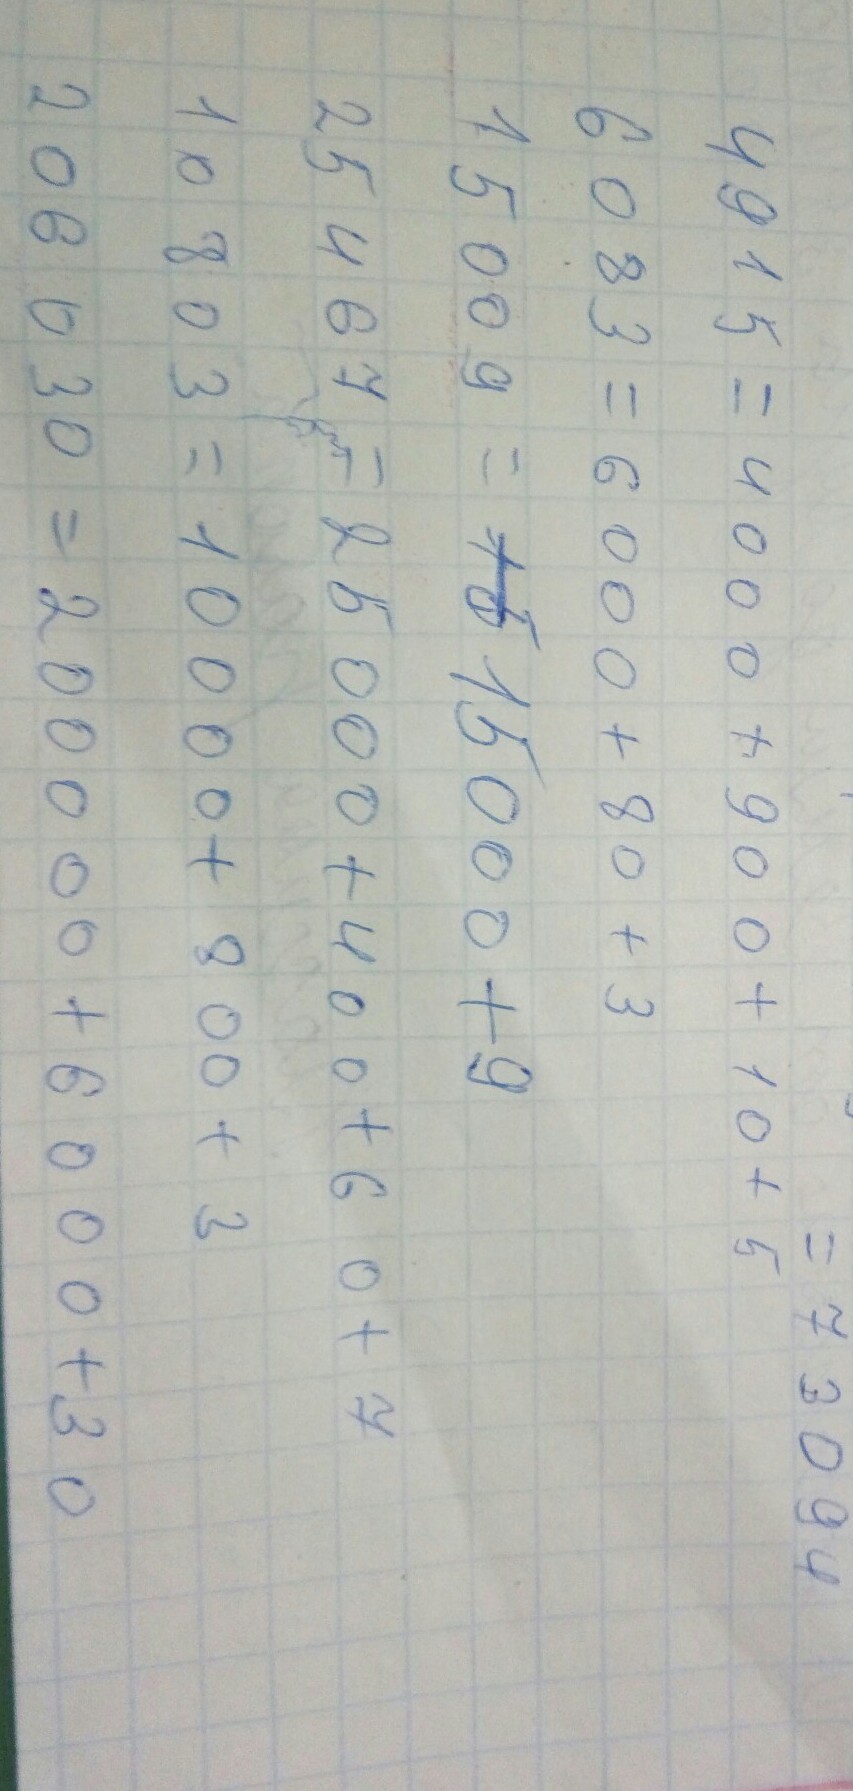 = 73094
4915 = 4000 + 900 + 10 + 5
6083 = 6000 + 80 + 3
15009 = 15000 + 9
25467 = 25000 + 400 + 60 + 7
10803 = 10000 + 800 + 3
206030 = 200000 + 6000 + 30